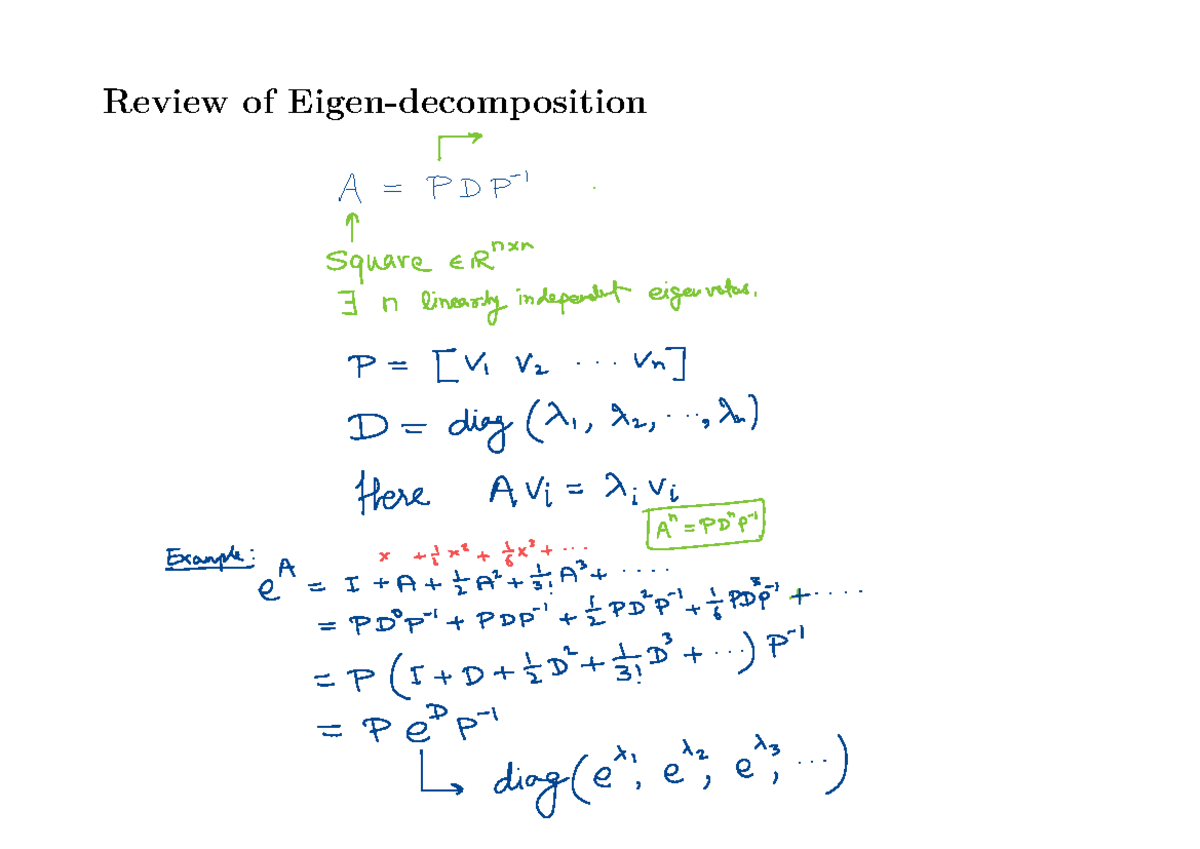 Review of Eigen-decomposition
A = PDP⁻¹
Square ∈ ℝⁿˣⁿ
∃ n linearly independent eigenvectors.
P = [v₁ v₂ ··· vₙ]
D = diag (λ₁, λ₂, ···, λₙ)
Here Avᵢ = λᵢvᵢ
Aⁿ = PDⁿP⁻¹
Example:
x + ½x² + ⅙x³ + ···
e^A = I + A + ½A² + 1/3! A³ + ····
= PD⁰P⁻¹ + PDP⁻¹ + ½PD²P⁻¹ + ⅙PD³P⁻¹ + ····
= P(I + D + ½D² + 1/3! D³ + ···)P⁻¹
= P e^D P⁻¹
diag(e^λ₁, e^λ₂, e^λ₃, ···)